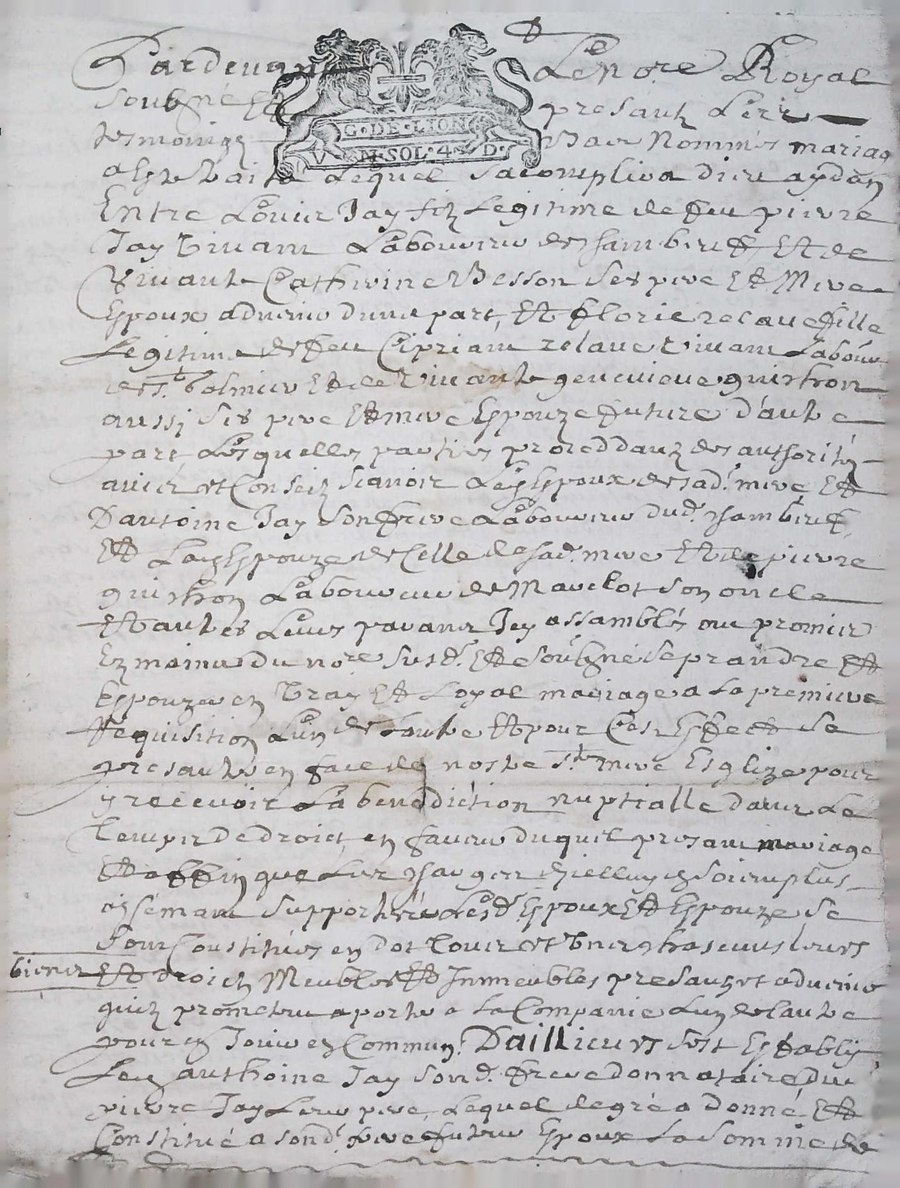 Pardevant Le no.re Royal
soubsigné Et presant Les
tesmoings Bas Nommés mariage
a Esté traité Lequel sacomplira dieu aydan
Entre Louis Jay filz Legitime de feu pierre
Jay vivant Laboureur de Et de
vivante Catherine Besson ses pere Et Mere
Espoux advenir dune part, Et florie relave fille
Legitime de feu Cipriam relave vivant Labour
de St. bolmier Et de vivante genevieve guishon
aussi ses pere Et mere Espouze future d'autre
part Lesquelles parties proceddanz des authorité
avis et Conseilz scavoir Led. Espoux de sad. mere Et
D'antoine Jay son frere Laboureur dud.
Et Lad. Espouze de Celle de sad. mere Et de pierre
guishon Laboureur de Marclot son oncle
Et autres Leurs parans Icy assamblés ont promis
Ez mains du no.re susd. Et soubsigné se prandre Et
Espouzer en vray Et Loyal mariage a La premiere
Requisition Lun de Lautre Et pour Cest Effect se
presanter en face de nostre Ste. mere Esglize pour
y recevoir La benediction nuptialle dans Le
temps De droict, en faveur duquel presant mariage
Et affin que Les charges dicelluy soient plus
aisémant supportées Lesd. Espoux Et Espouze se
sont Constitués en dot tous et uns chascuns leurs
biens Et droicts Meubles Et Immeubles presantz et advenir
quilz prometent aporter a La Compagnie Lun de Lautre
pour en Jouir en Commun. D'aillieurs sest Establÿ
Led. anthoine Jay sond. frere donnataire du
pierre Jay Leur pere, Lequel de gré a donné Et
Constitué a sond. frere futur Espoux La somme de
G·DE·LION
VN·SOL·4·D·